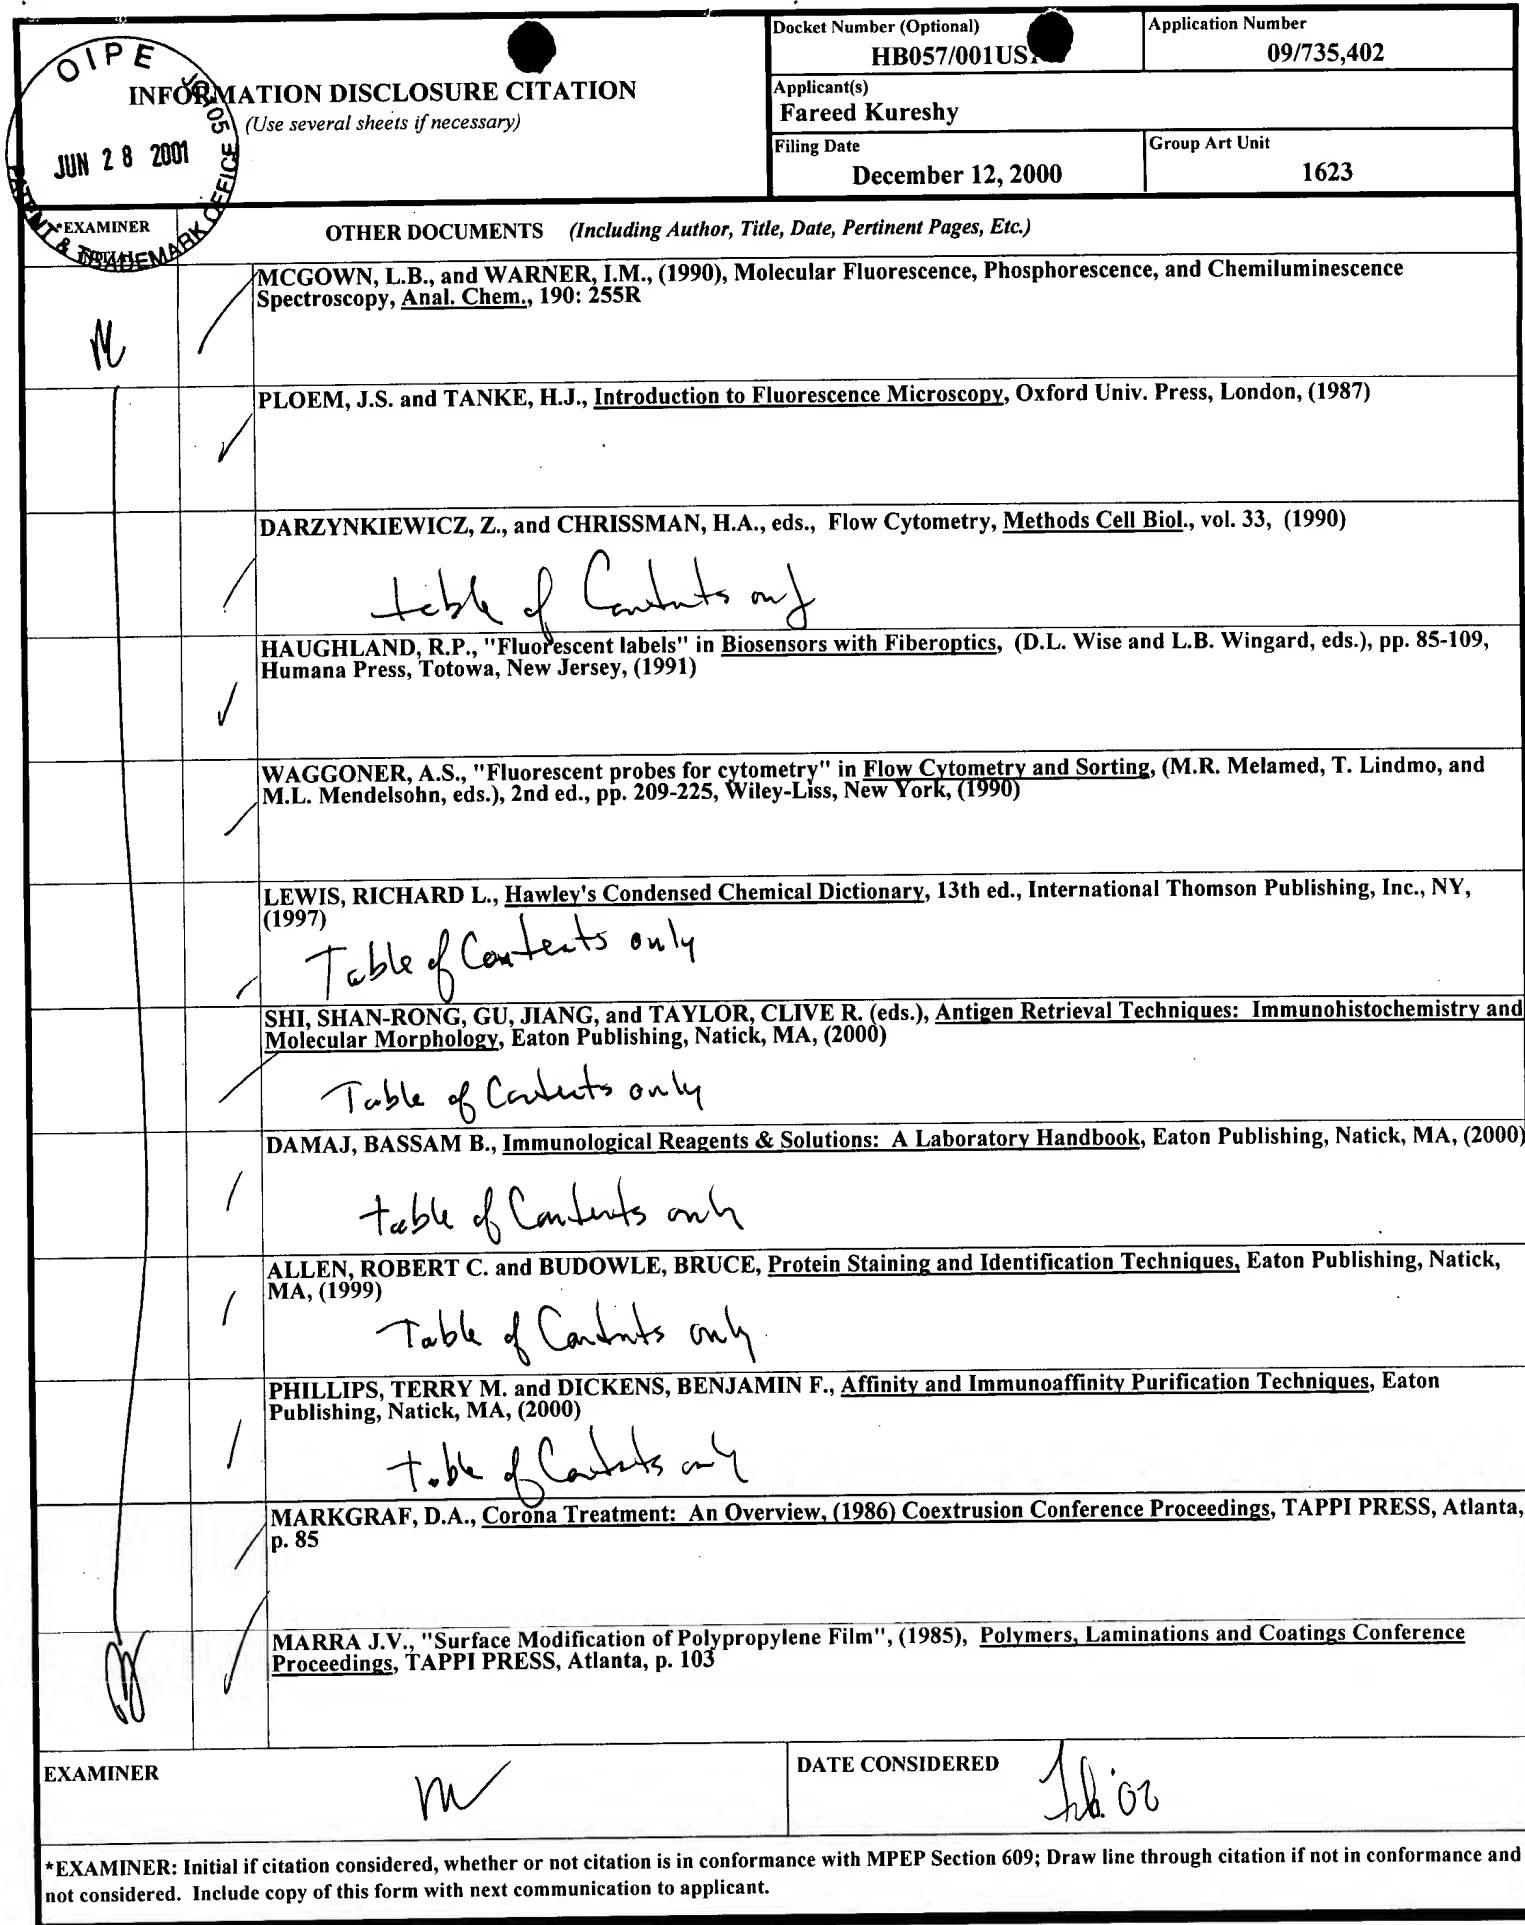 Docket Number (Optional)
HB057/001US
Application Number
09/735,402
OIPE
JUN 28 2001
PATENT & TRADEMARK OFFICE
INFORMATION DISCLOSURE CITATION
(Use several sheets if necessary)
Applicant(s)
Fareed Kureshy
Filing Date
December 12, 2000
Group Art Unit
1623
*EXAMINER
OTHER DOCUMENTS (Including Author, Title, Date, Pertinent Pages, Etc.)
MCGOWN, L.B., and WARNER, I.M., (1990), Molecular Fluorescence, Phosphorescence, and Chemiluminescence
Spectroscopy, Anal. Chem., 190: 255R
PLOEM, J.S. and TANKE, H.J., Introduction to Fluorescence Microscopy, Oxford Univ. Press, London, (1987)
DARZYNKIEWICZ, Z., and CHRISSMAN, H.A., eds., Flow Cytometry, Methods Cell Biol., vol. 33, (1990)
table of Contents only
HAUGHLAND, R.P., "Fluorescent labels" in Biosensors with Fiberoptics, (D.L. Wise and L.B. Wingard, eds.), pp. 85-109,
Humana Press, Totowa, New Jersey, (1991)
WAGGONER, A.S., "Fluorescent probes for cytometry" in Flow Cytometry and Sorting, (M.R. Melamed, T. Lindmo, and
M.L. Mendelsohn, eds.), 2nd ed., pp. 209-225, Wiley-Liss, New York, (1990)
LEWIS, RICHARD L., Hawley's Condensed Chemical Dictionary, 13th ed., International Thomson Publishing, Inc., NY,
(1997)
Table of Contents only
SHI, SHAN-RONG, GU, JIANG, and TAYLOR, CLIVE R. (eds.), Antigen Retrieval Techniques: Immunohistochemistry and
Molecular Morphology, Eaton Publishing, Natick, MA, (2000)
Table of Contents only
DAMAJ, BASSAM B., Immunological Reagents & Solutions: A Laboratory Handbook, Eaton Publishing, Natick, MA, (2000)
table of Contents only
ALLEN, ROBERT C. and BUDOWLE, BRUCE, Protein Staining and Identification Techniques, Eaton Publishing, Natick,
MA, (1999)
Table of Contents only
PHILLIPS, TERRY M. and DICKENS, BENJAMIN F., Affinity and Immunoaffinity Purification Techniques, Eaton
Publishing, Natick, MA, (2000)
table of Contents only
MARKGRAF, D.A., Corona Treatment: An Overview, (1986) Coextrusion Conference Proceedings, TAPPI PRESS, Atlanta,
p. 85
MARRA J.V., "Surface Modification of Polypropylene Film", (1985), Polymers, Laminations and Coatings Conference
Proceedings, TAPPI PRESS, Atlanta, p. 103
EXAMINER
DATE CONSIDERED
Feb. '02
*EXAMINER: Initial if citation considered, whether or not citation is in conformance with MPEP Section 609; Draw line through citation if not in conformance and
not considered. Include copy of this form with next communication to applicant.